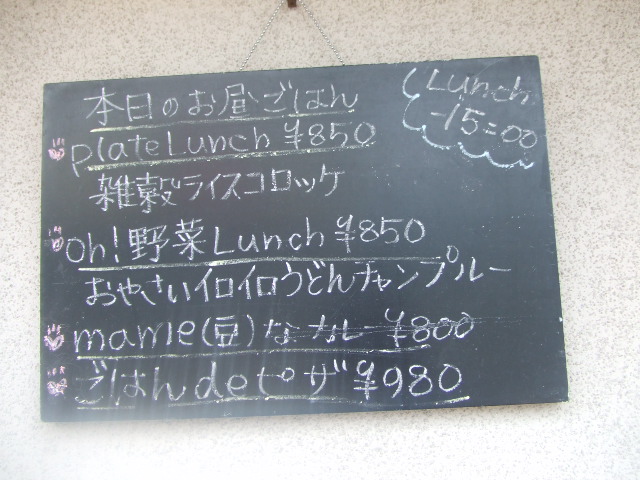 本日のお昼ごはん
Lunch
-15:00
plate Lunch ¥850
雑穀ライスコロッケ
oh!野菜Lunch ¥850
おやさいイロイロうどんチャンプルー
mame(豆)なカレー ¥800
ごはんdeピザ ¥980